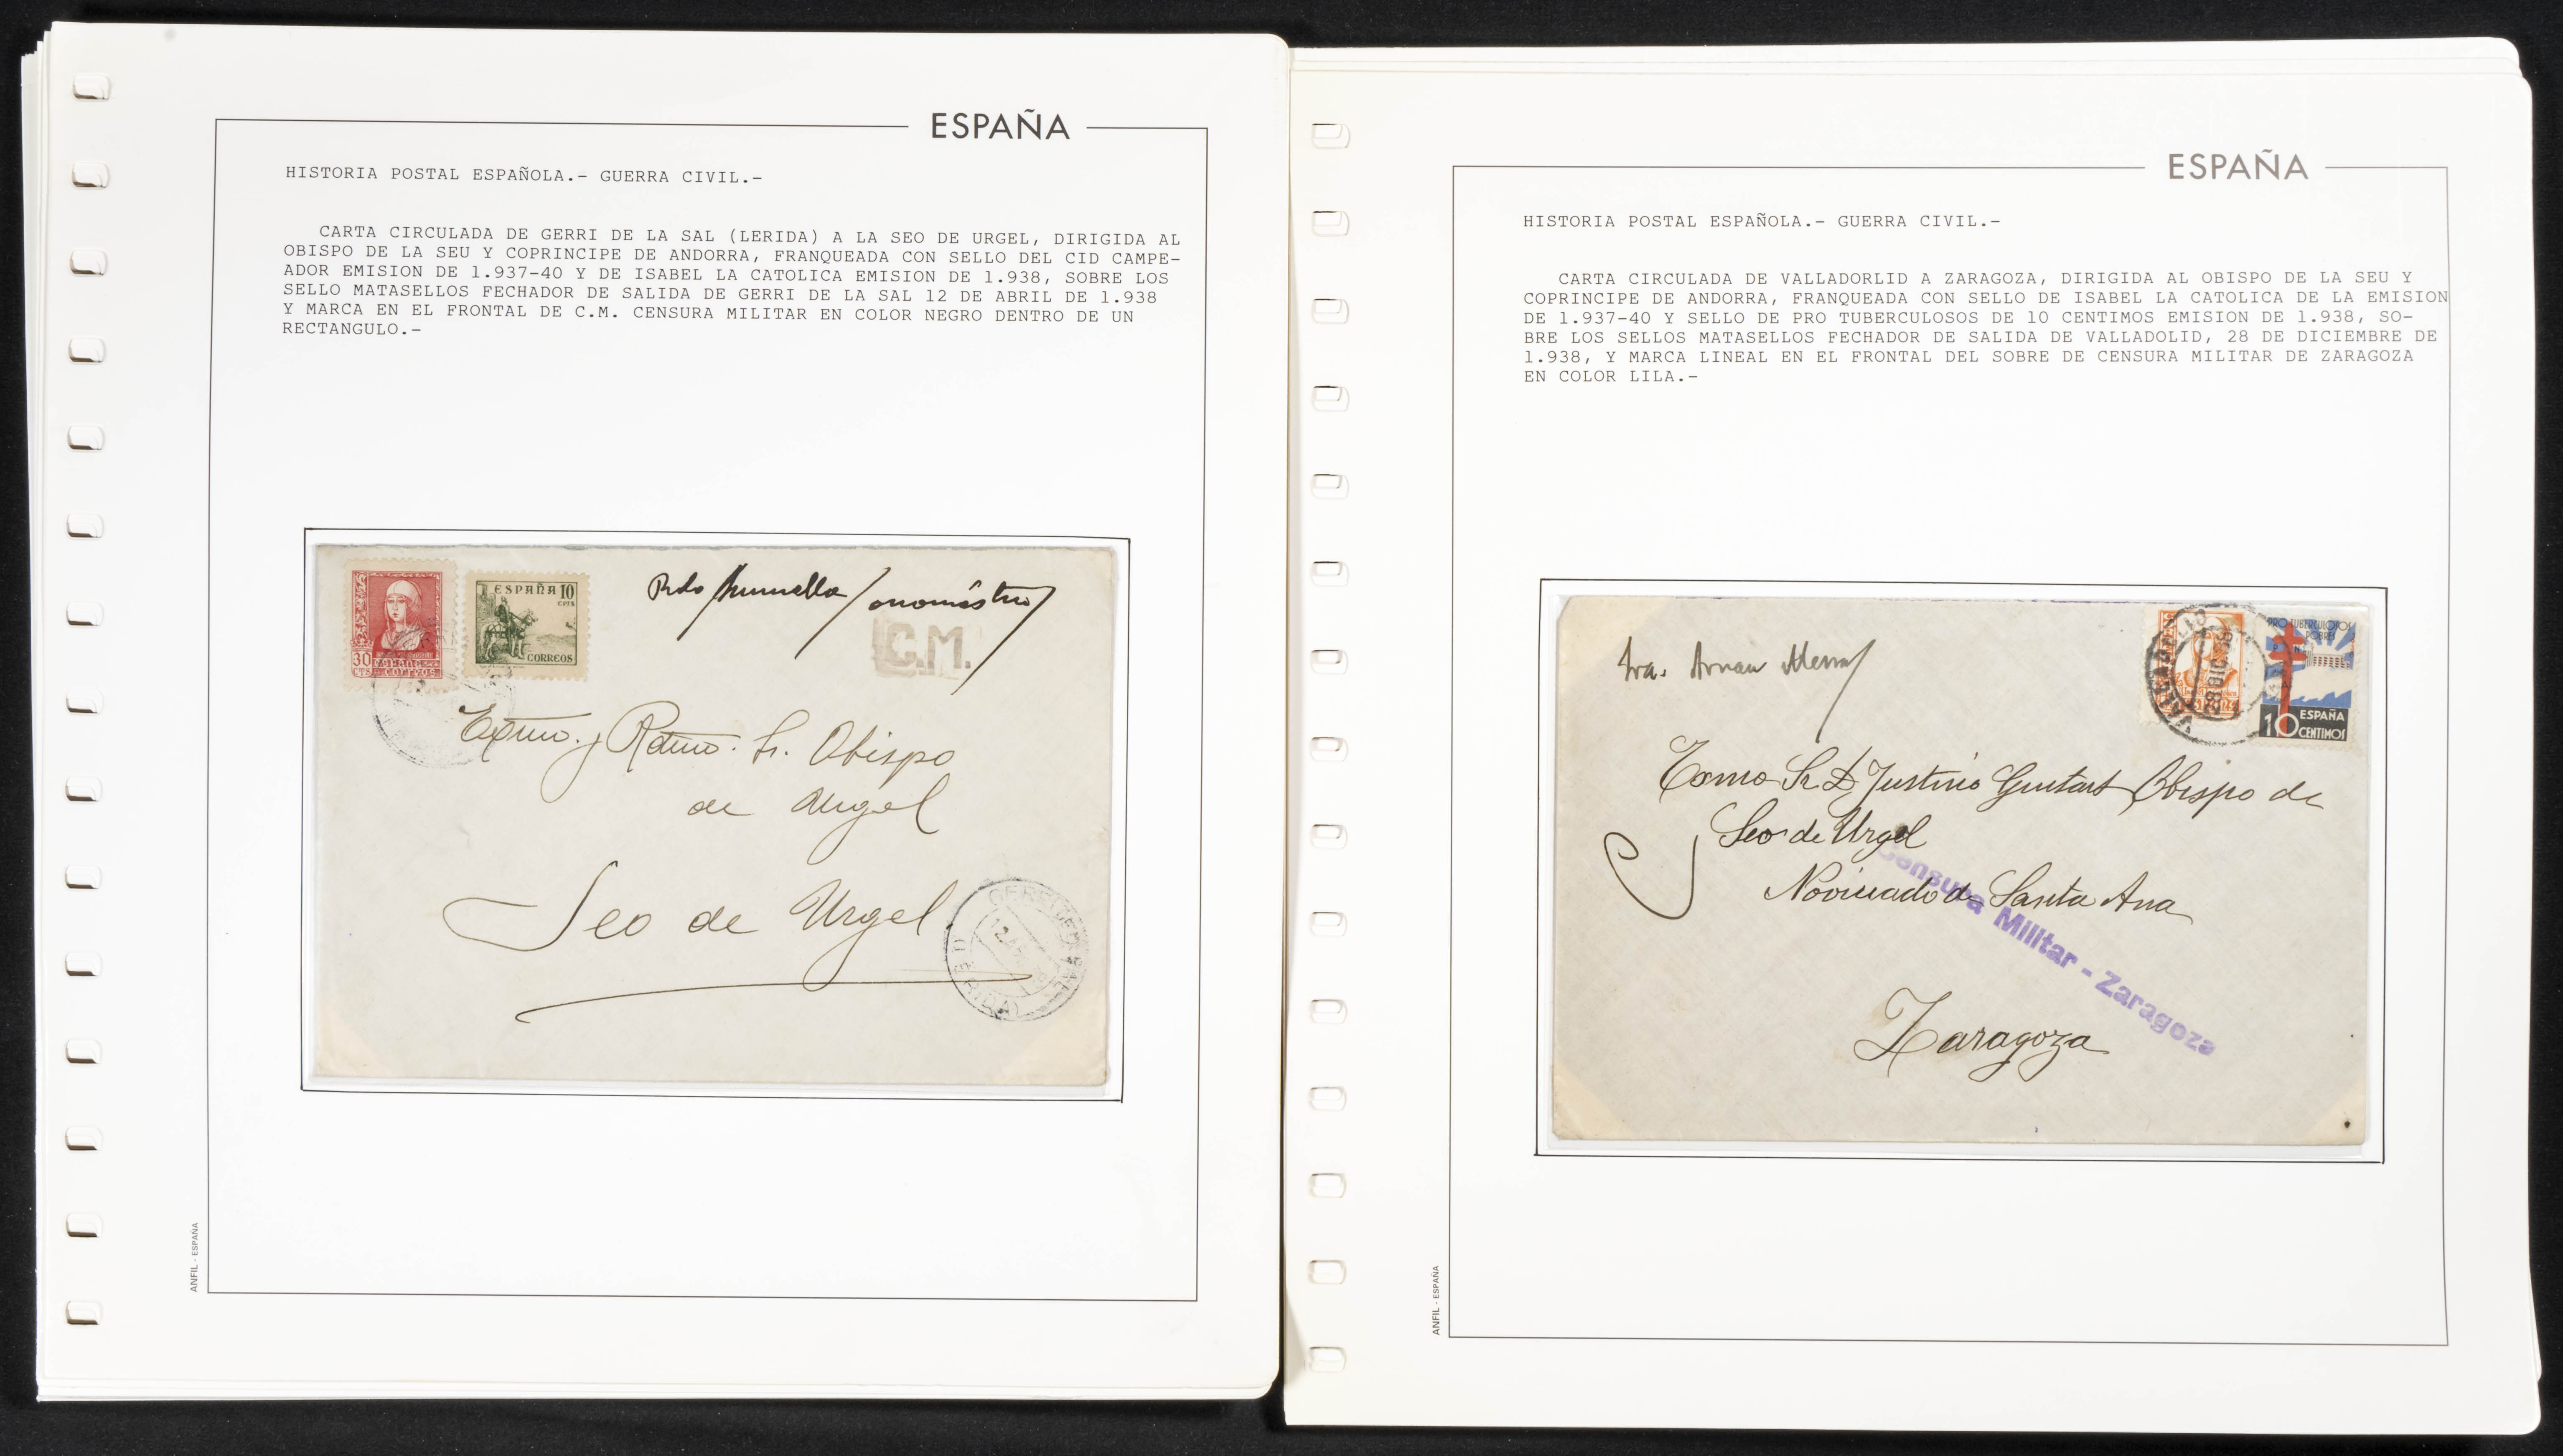 ESPAÑA
HISTORIA POSTAL ESPAÑOLA.- GUERRA CIVIL.-
CARTA CIRCULADA DE GERRI DE LA SAL (LERIDA) A LA SEO DE URGEL, DIRIGIDA AL
OBISPO DE LA SEU Y COPRINCIPE DE ANDORRA, FRANQUEADA CON SELLO DEL CID CAMPE-
ADOR EMISION DE 1.937-40 Y DE ISABEL LA CATOLICA EMISION DE 1.938, SOBRE LOS
SELLO MATASELLOS FECHADOR DE SALIDA DE GERRI DE LA SAL 12 DE ABRIL DE 1.938
Y MARCA EN EL FRONTAL DE C.M. CENSURA MILITAR EN COLOR NEGRO DENTRO DE UN
RECTANGULO.-
30
CTS
CORREOS
ESPAÑA 10
CTS
CORREOS
onomástico
C.M.
Exmo. y Rdmo. Sr. Obispo
de Urgel
Seo de Urgel
ANFIL - ESPAÑA
ESPAÑA
HISTORIA POSTAL ESPAÑOLA.- GUERRA CIVIL.-
CARTA CIRCULADA DE VALLADORLID A ZARAGOZA, DIRIGIDA AL OBISPO DE LA SEU Y
COPRINCIPE DE ANDORRA, FRANQUEADA CON SELLO DE ISABEL LA CATOLICA DE LA EMISION
DE 1.937-40 Y SELLO DE PRO TUBERCULOSOS DE 10 CENTIMOS EMISION DE 1.938, SO-
BRE LOS SELLOS MATASELLOS FECHADOR DE SALIDA DE VALLADOLID, 28 DE DICIEMBRE DE
1.938, Y MARCA LINEAL EN EL FRONTAL DEL SOBRE DE CENSURA MILITAR DE ZARAGOZA
EN COLOR LILA.-
VALLADOLID
28 DIC 38
PRO TUBERCULOSOS
POBRES
10 ESPAÑA
CENTIMOS
Exmo Sr D Justino Guitart Obispo de
Seo de Urgel
Noviciado de Santa Ana
Censura Militar - Zaragoza
Zaragoza
ANFIL - ESPAÑA